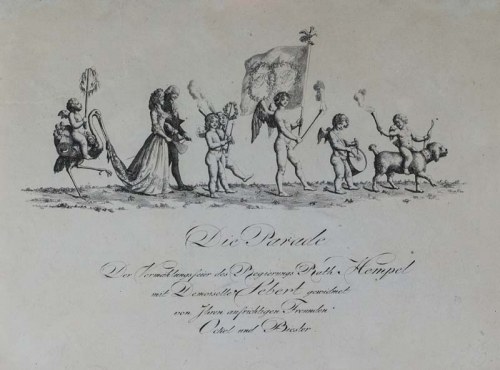 Die Parade
Der Vermählungsfeier des Regierungs Rath Hempel
mit Demoiselle Sebert gewidmet
von Ihren aufrichtigen Freunden
und